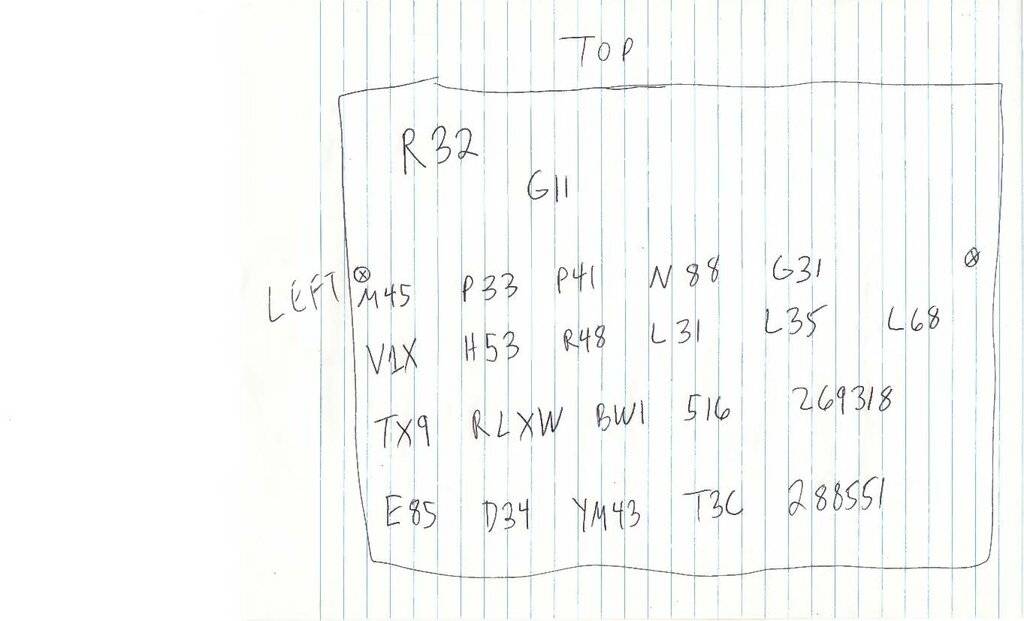 TOP
R32
G11
LEFT
M45 P33 P41 N88 G31
V1X H53 R48 L31 L35 L68
TX9 RLXW BW1 516 269318
E85 D34 YM43 T3C 288551